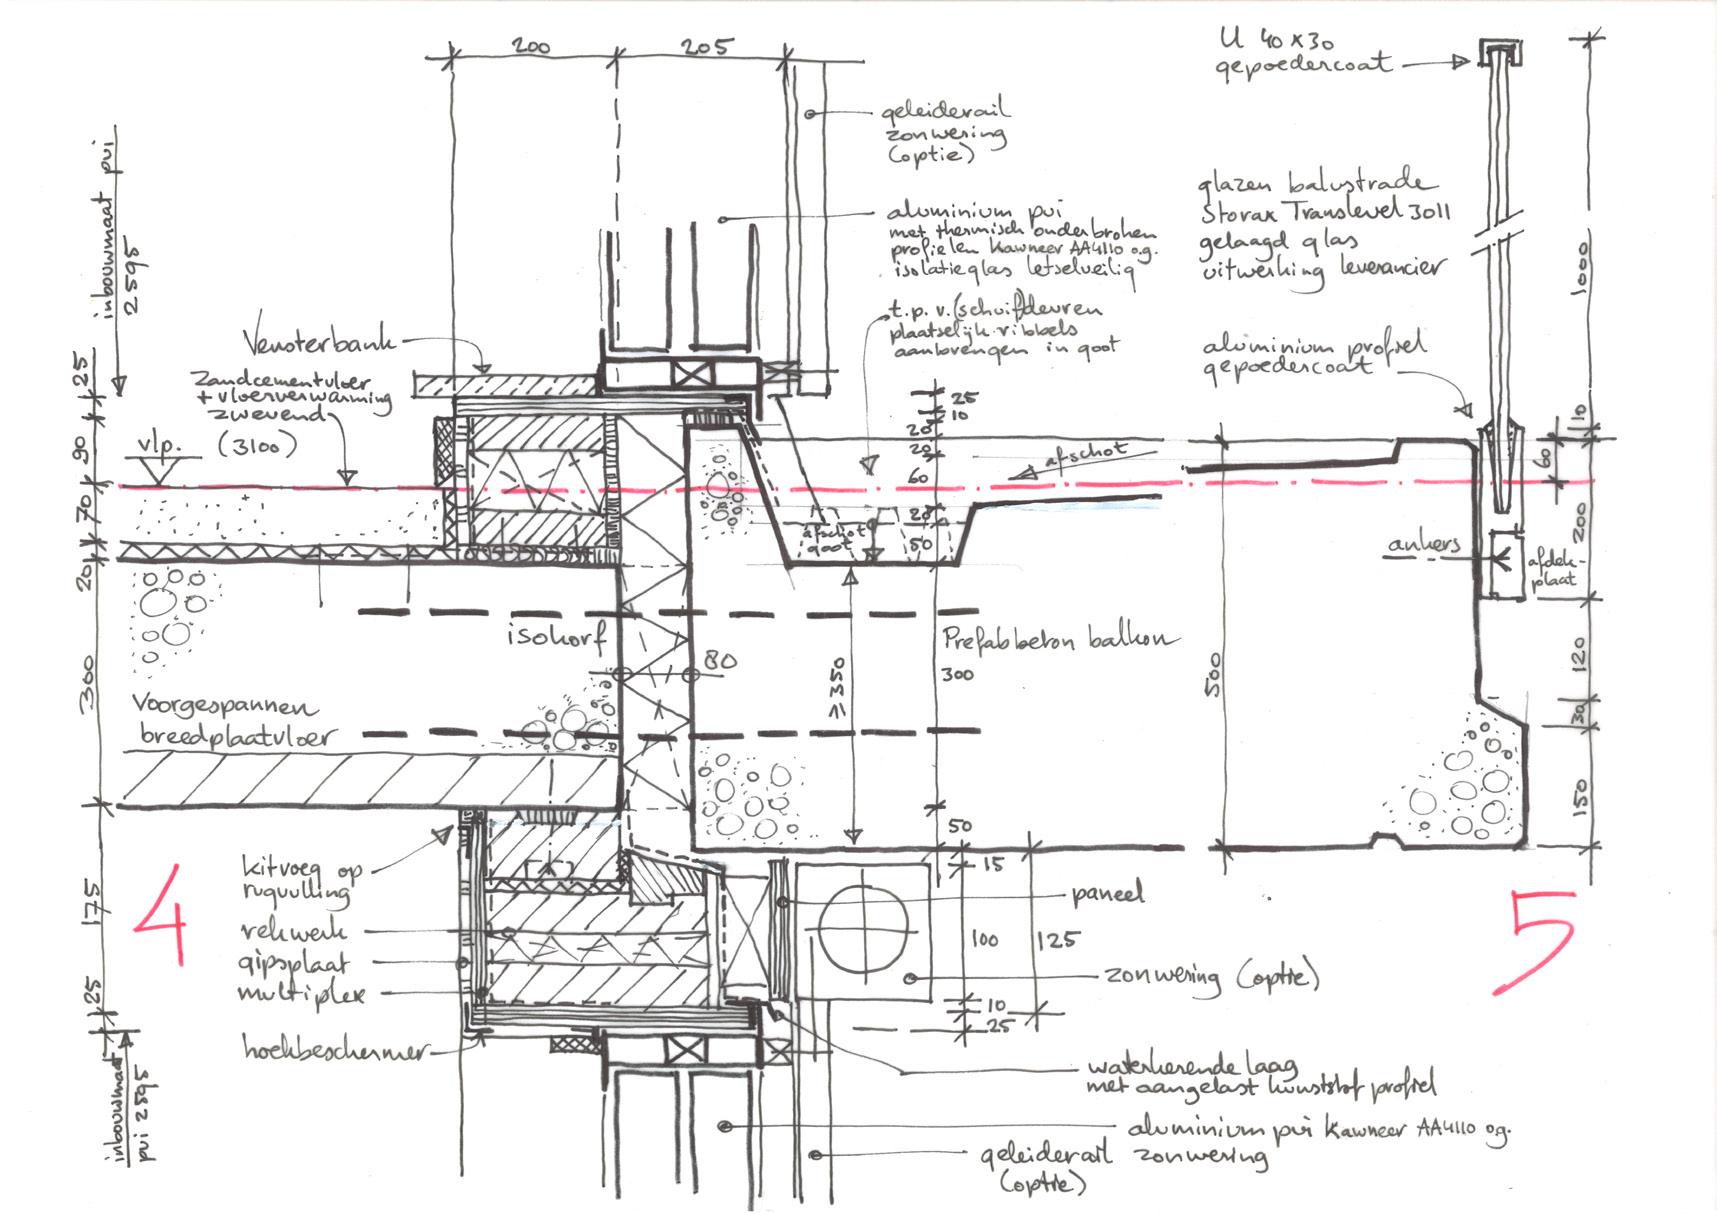 200
205
U 40 x 30
gepoedercoat
geleiderail
zonwering
(optie)
inbouwmaat pui
2595
aluminium pui
met thermisch onderbroken
profielen Kawneer AA4110 o.g.
isolatieglas letselveilig
glazen balustrade
Storax Translevel 3011
gelaagd glas
uitwerking leverancier
1000
t.p.v. (schuif)deuren
plaatselijk ribbels
aanbrengen in goot
Vensterbank
aluminium profiel
gepoedercoat
Zandcementvloer
+ vloerverwarming
zwevend
(3100)
vlp.
25
90
70
20
300
175
25
25
10
20
20
60
20
50
afschot
afschot
goot
10
60
200
ankers
afdek-
plaat
isokorf
80
≥ 350
Prefabbeton balkon
300
500
120
30
150
Voorgespannen
breedplaatvloer
50
15
100
125
10
25
kitvoeg op
rugvulling
4
5
paneel
rekwerk
gipsplaat
multiplex
zonwering (optie)
hoekbeschermer
inbouwmaat
pui 2595
waterkerende laag
met aangelast kunststof profiel
aluminium pui Kawneer AA4110 o.g.
geleiderail zonwering
(optie)